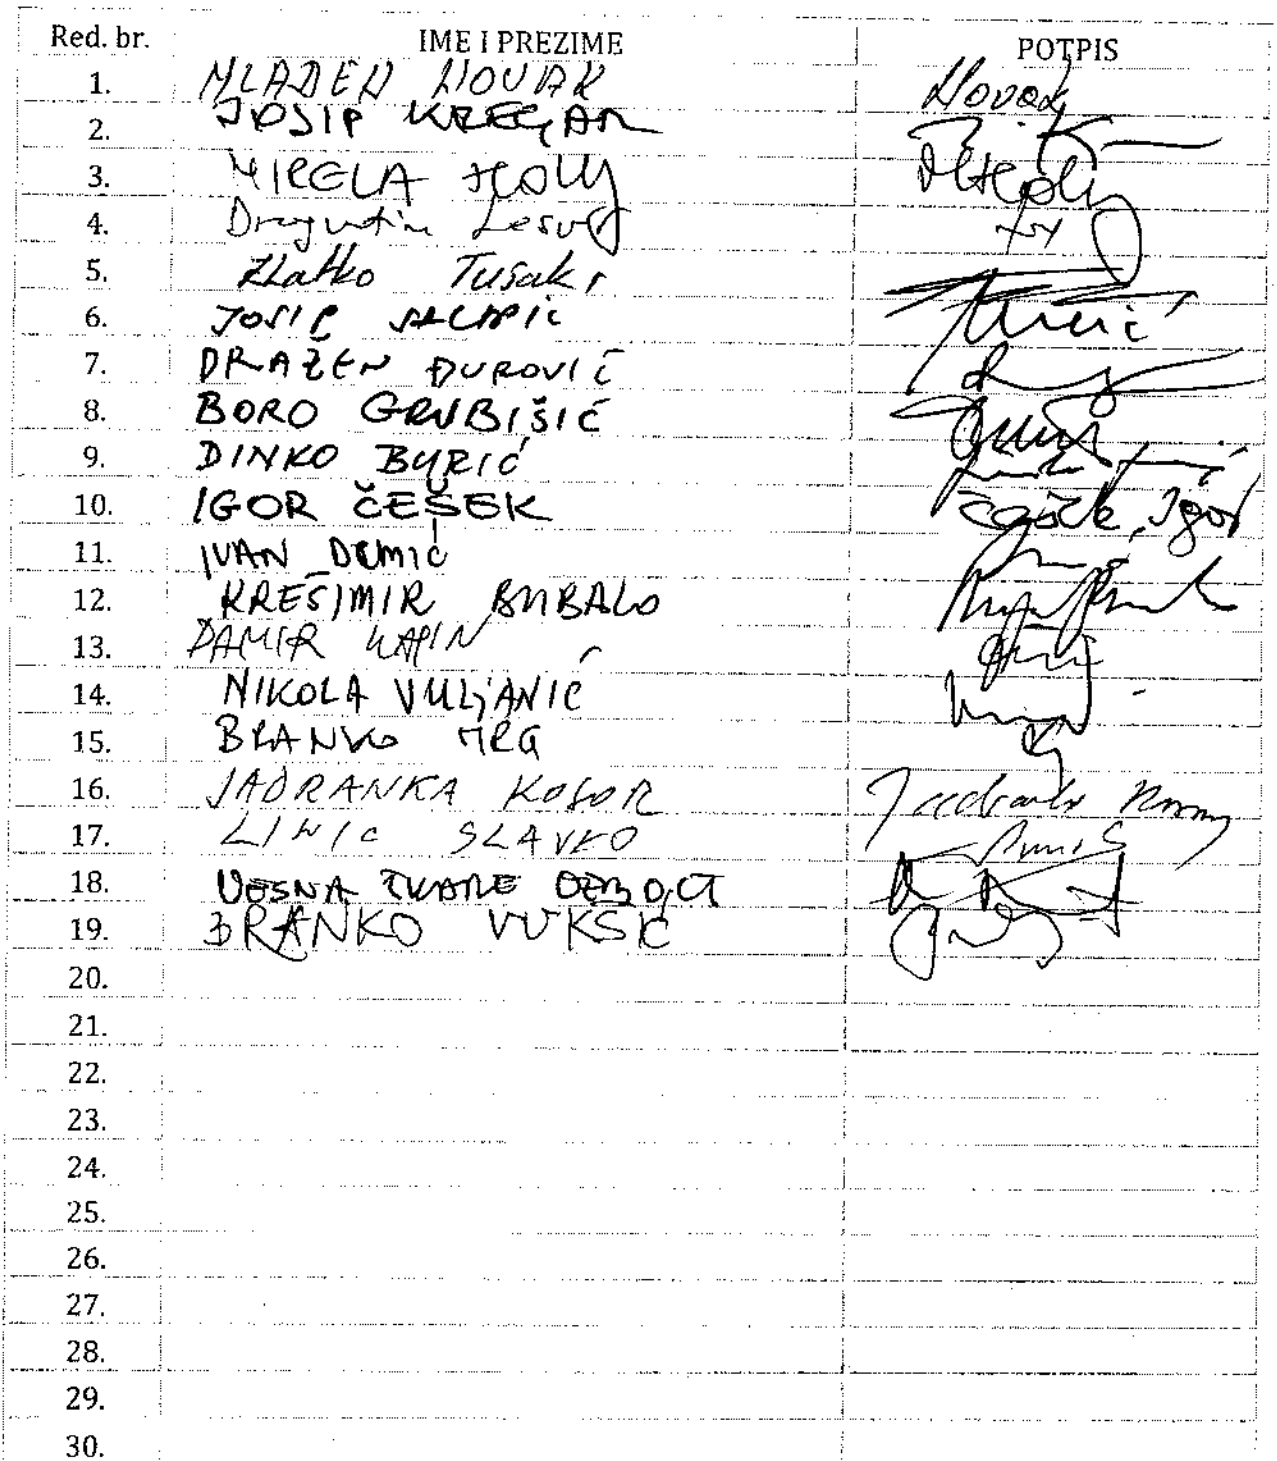 Red. br. IME I PREZIME POTPIS
1. MLADEN NOVAK Novak
2. JOSIP KREGAR
3. MIRELA HOLY MHoly
4. Dragutin Lesar
5. Zlatko Tušak
6. JOSIP SALAPIĆ
7. DRAŽEN ĐUROVIĆ
8. BORO GRUBIŠIĆ
9. DINKO BURIĆ
10. IGOR ČEŠEK Češek Igor
11. IVAN DEMIĆ
12. KREŠIMIR BUBALO
13. DAMIR KAJIN
14. NIKOLA VULJANIĆ
15. BRANKO HRG
16. JADRANKA KOSOR Jadranka Kosor
17. LINIĆ SLAVKO
18. VESNA ŠKARE OŽBOLT
19. BRANKO VUKŠIĆ
20.
21.
22.
23.
24.
25.
26.
27.
28.
29.
30.